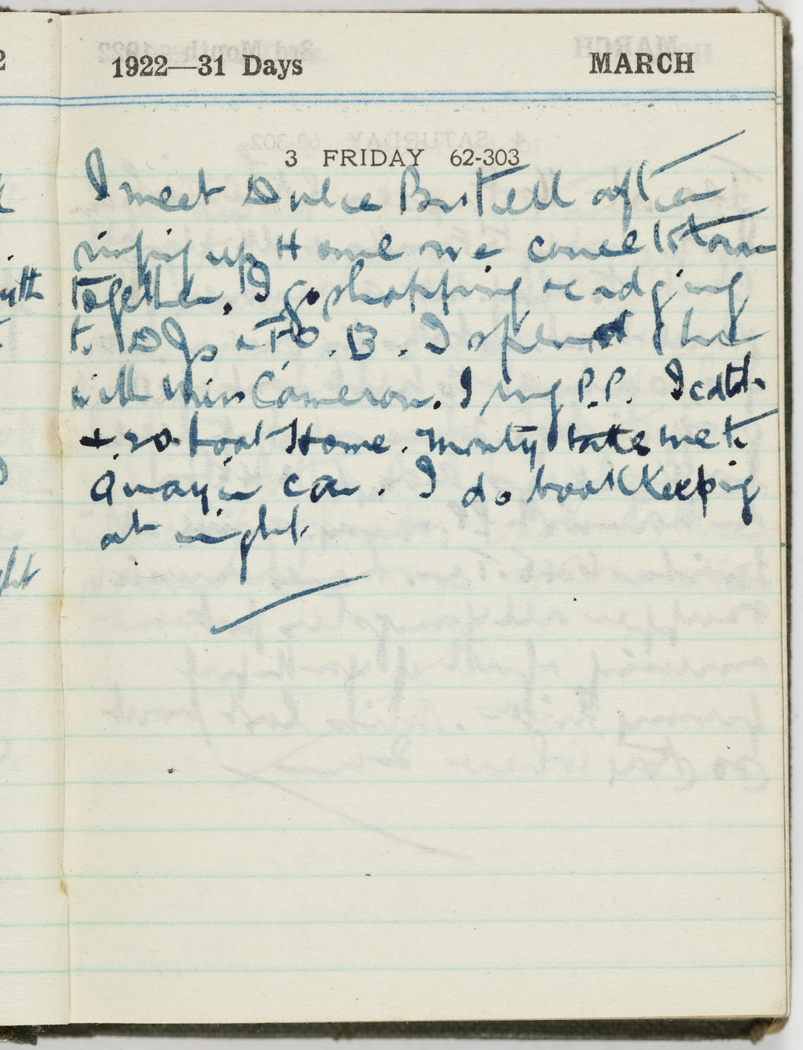 1922—31 Days MARCH
3 FRIDAY 62-303
I meet Dulce after
ringing up Home we come to town
together. I go shopping
to DJs B. I spent
with Miss Cameron. I ring P.P. I catch
4.20 boat Home. Monty takes me
away in car. I do bookkeeping
at night